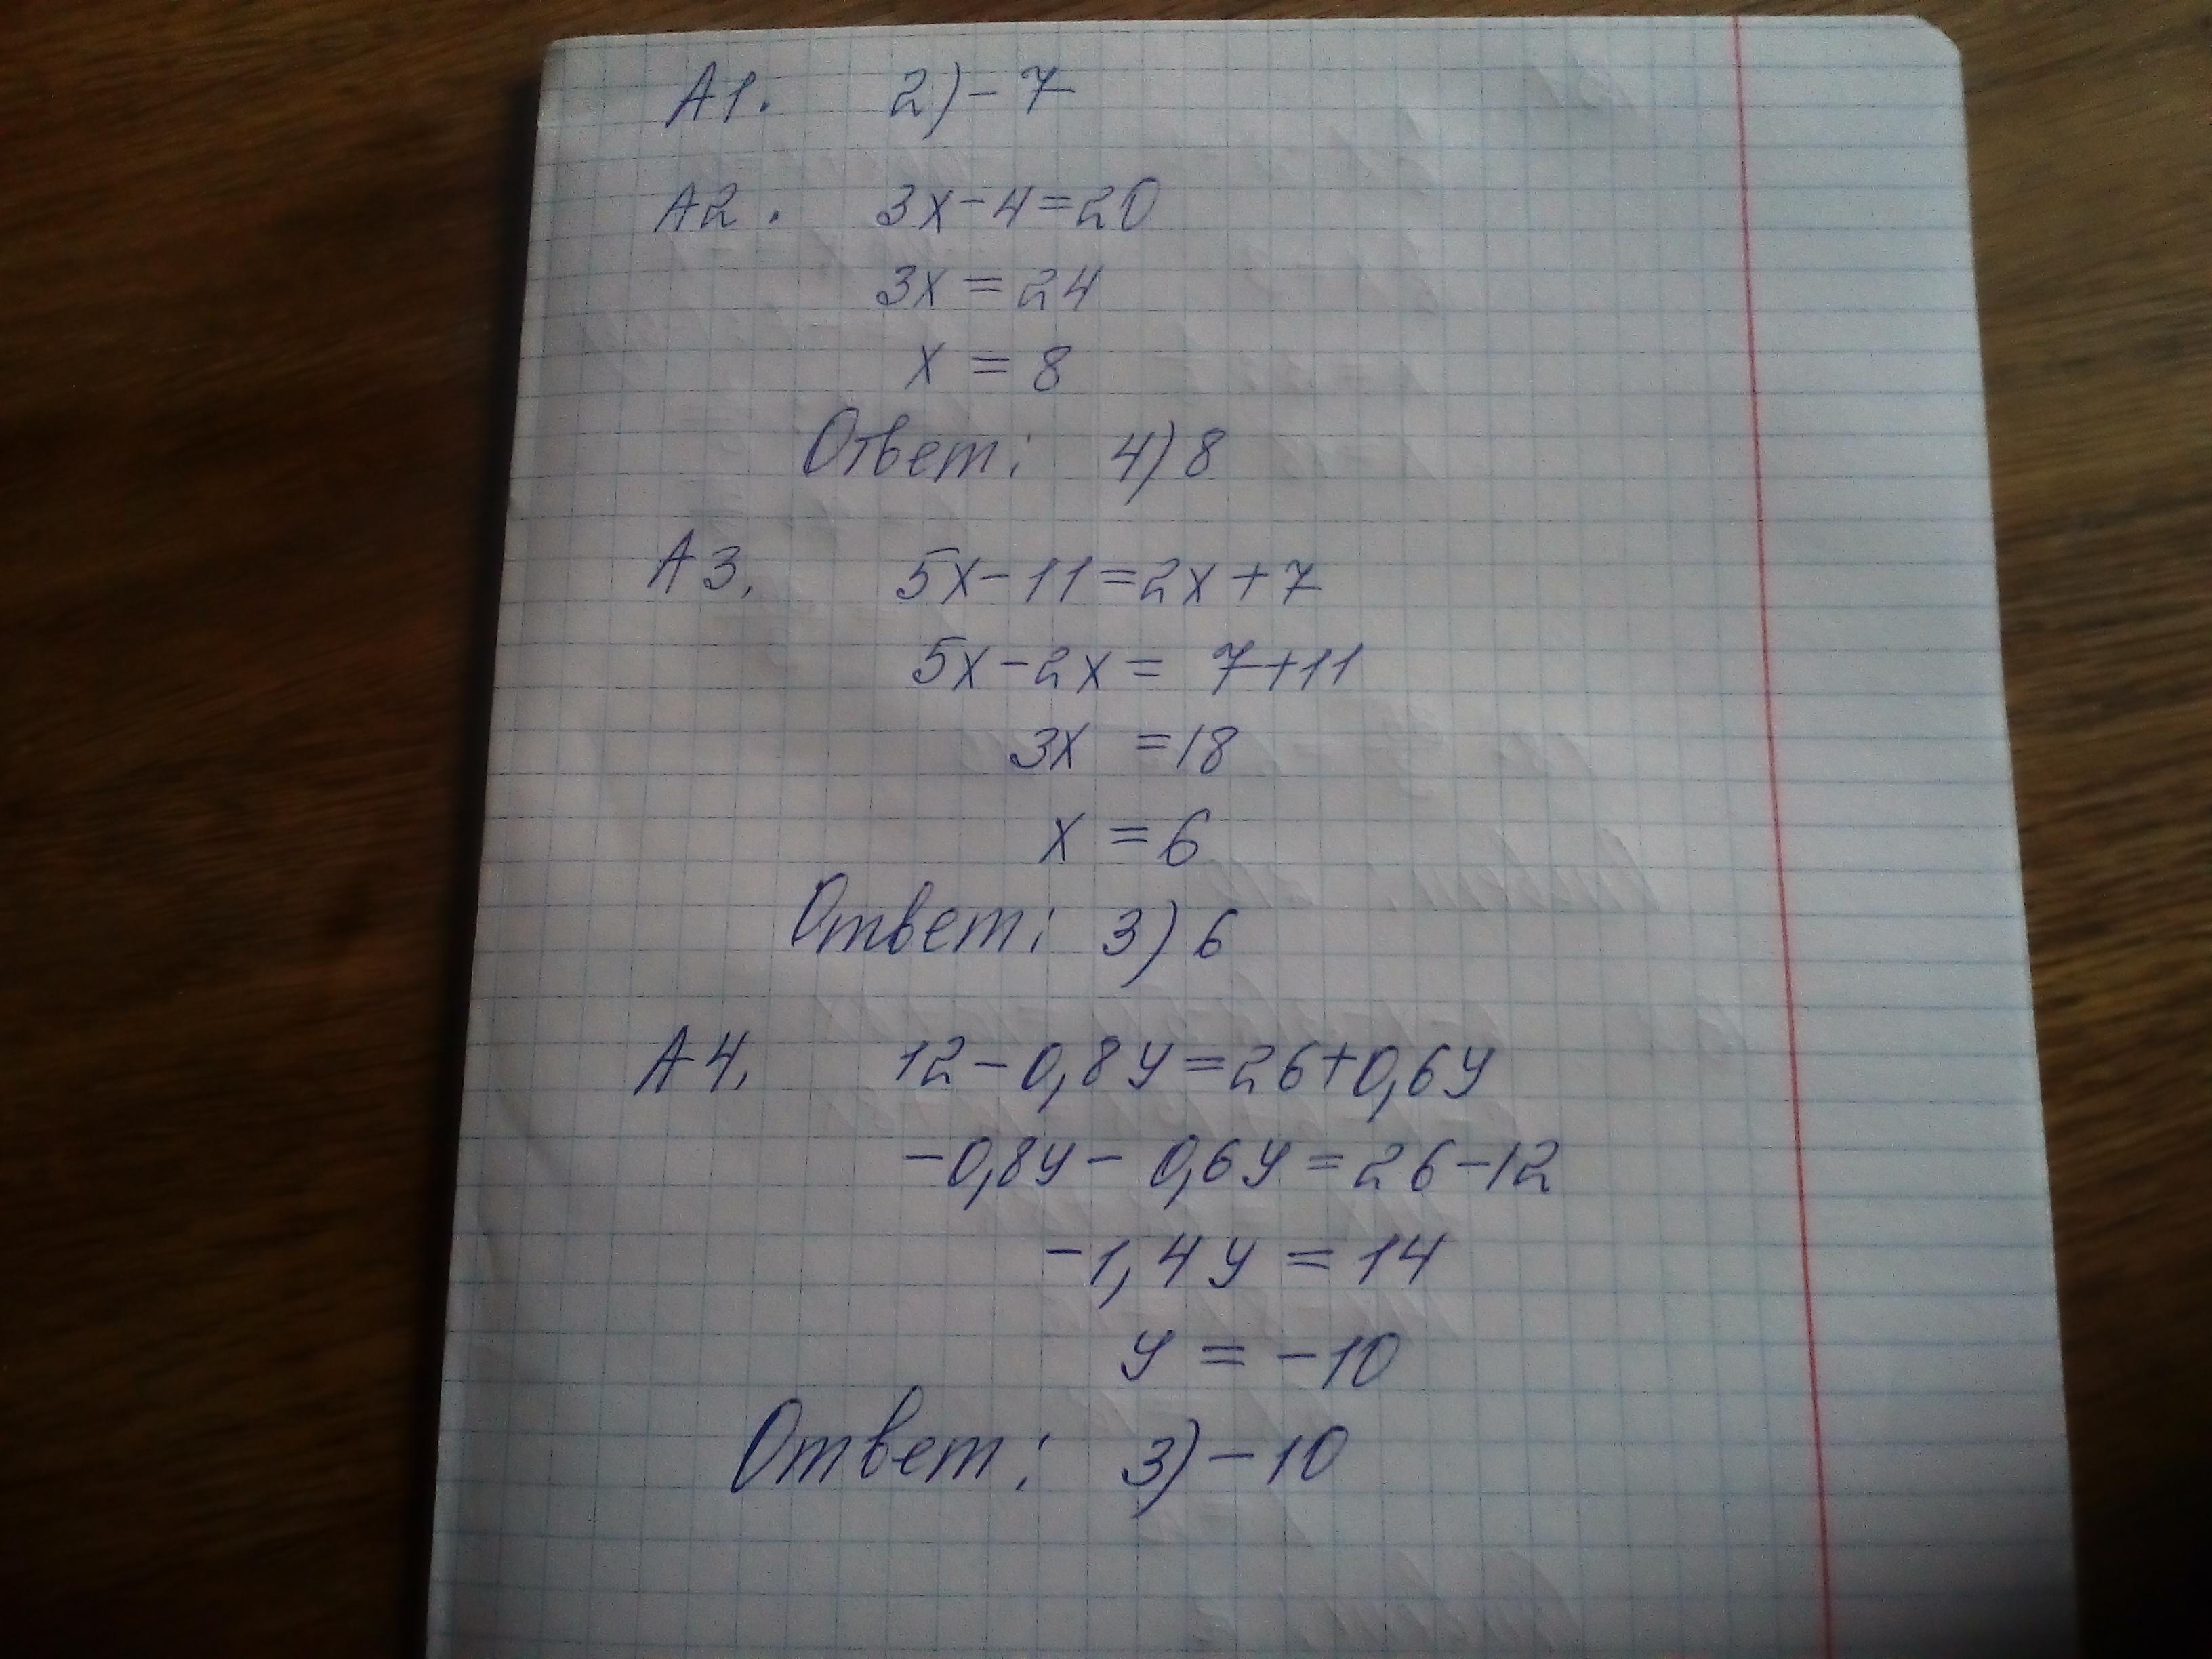 А1. 2) -7
А2. 3x-4=20
3x=24
x=8
Ответ: 4) 8
А3. 5x-11=2x+7
5x-2x=7+11
3x=18
x=6
Ответ: 3) 6
А4. 12-0,8y=26+0,6y
-0,8y-0,6y=26-12
-1,4y=14
y=-10
Ответ: 3) -10